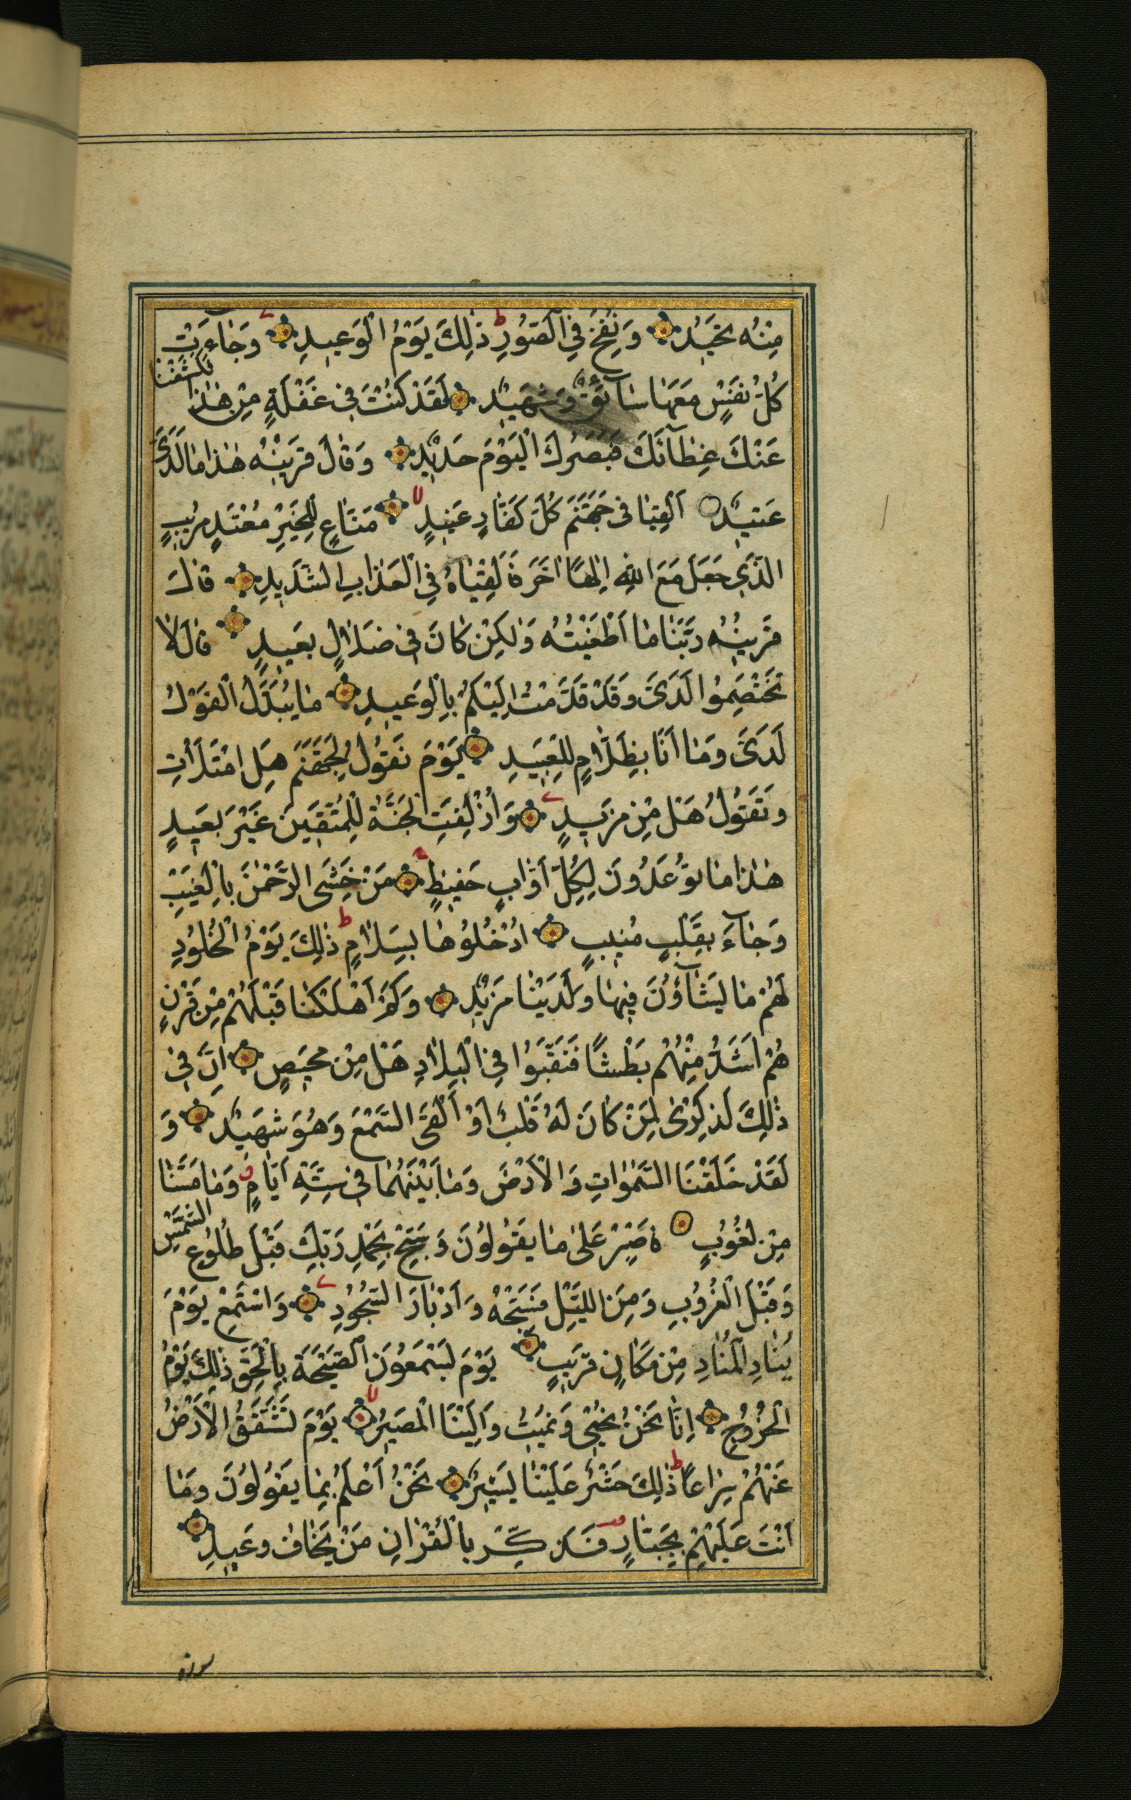 مِنْهُ تَحٖيدُ وَنُفِخَ فِي الصُّورِ ط ذٰلِكَ يَوْمُ الْوَعٖيدِ وَجَاۤءَتْ
كُلُّ نَفْسٍ مَعَهَا سَاۤئِقٌ وَشَهٖيدٌ لَقَدْ كُنْتَ فٖي غَفْلَةٍ مِنْ هٰذَا فَكَشَفْنَا
عَنْكَ غِطَاۤئَكَ فَبَصَرُكَ الْيَوْمَ حَدٖيدٌ وَقَالَ قَرٖينُهُ هٰذَا مَا لَدَيَّ
عَتٖيدٌ اَلْقِيَا فٖي جَهَنَّمَ كُلَّ كَفَّارٍ عَنٖيدٍ لا مَنَّاعٍ لِلْخَيْرِ مُعْتَدٍ مُرٖيبٍ
الَّذٖي جَعَلَ مَعَ اللهِ اِلٰهًا اٰخَرَ فَاَلْقِيَاهُ فِي الْعَذَابِ الشَّدٖيدِ قَالَ
قَرٖينُهُ رَبَّنَا مَا اَطْغَيْتُهُ وَلٰكِنْ كَانَ فٖي ضَلَالٍ بَعٖيدٍ قَالَ لَا
تَخْتَصِمُوا لَدَيَّ وَقَدْ قَدَّمْتُ اِلَيْكُمْ بِالْوَعٖيدِ مَا يُبَدَّلُ الْقَوْلُ
لَدَيَّ وَمَا اَنَا بِظَلَّامٍ لِلْعَبٖيدِ يَوْمَ نَقُولُ لِجَهَنَّمَ هَلِ امْتَلَأْتِ
وَتَقُولُ هَلْ مِنْ مَزٖيدٍ وَاُزْلِفَتِ الْجَنَّةُ لِلْمُتَّقٖينَ غَيْرَ بَعٖيدٍ
هٰذَا مَا تُوعَدُونَ لِكُلِّ اَوَّابٍ حَفٖيظٍ مَنْ خَشِيَ الرَّحْمٰنَ بِالْغَيْبِ
وَجَاۤءَ بِقَلْبٍ مُنٖيبٍ اُدْخُلُوهَا بِسَلَامٍ ط ذٰلِكَ يَوْمُ الْخُلُودِ
لَهُمْ مَا يَشَاۤؤُنَ فٖيهَا وَلَدَيْنَا مَزٖيدٌ وَكَمْ اَهْلَكْنَا قَبْلَهُمْ مِنْ قَرْنٍ
هُمْ اَشَدُّ مِنْهُمْ بَطْشًا فَنَقَّبُوا فِي الْبِلَادِ هَلْ مِنْ مَحٖيصٍ اِنَّ فٖي
ذٰلِكَ لَذِكْرٰى لِمَنْ كَانَ لَهُ قَلْبٌ اَوْ اَلْقَى السَّمْعَ وَهُوَ شَهٖيدٌ وَ
لَقَدْ خَلَقْنَا السَّمٰوَاتِ وَالْاَرْضَ وَمَا بَيْنَهُمَا فٖي سِتَّةِ اَيَّامٍ وَمَا مَسَّنَا
مِنْ لُغُوبٍ فَاصْبِرْ عَلٰى مَا يَقُولُونَ وَسَبِّحْ بِحَمْدِ رَبِّكَ قَبْلَ طُلُوعِ الشَّمْسِ
وَقَبْلَ الْغُرُوبِ وَمِنَ اللَّيْلِ فَسَبِّحْهُ وَاَدْبَارَ السُّجُودِ وَاسْتَمِعْ يَوْمَ
يُنَادِ الْمُنَادِ مِنْ مَكَانٍ قَرٖيبٍ يَوْمَ يَسْمَعُونَ الصَّيْحَةَ بِالْحَقِّ ذٰلِكَ يَوْمُ
الْخُرُوجِ اِنَّا نَحْنُ نُحْيٖي وَنُمٖيتُ وَاِلَيْنَا الْمَصٖيرُ لا يَوْمَ تَشَقَّقُ الْاَرْضُ
عَنْهُمْ سِرَاعًا ط ذٰلِكَ حَشْرٌ عَلَيْنَا يَسٖيرٌ نَحْنُ اَعْلَمُ بِمَا يَقُولُونَ وَمَا
اَنْتَ عَلَيْهِمْ بِجَبَّارٍ فَذَكِّرْ بِالْقُرْاٰنِ مَنْ يَخَافُ وَعٖيدِ
سورة